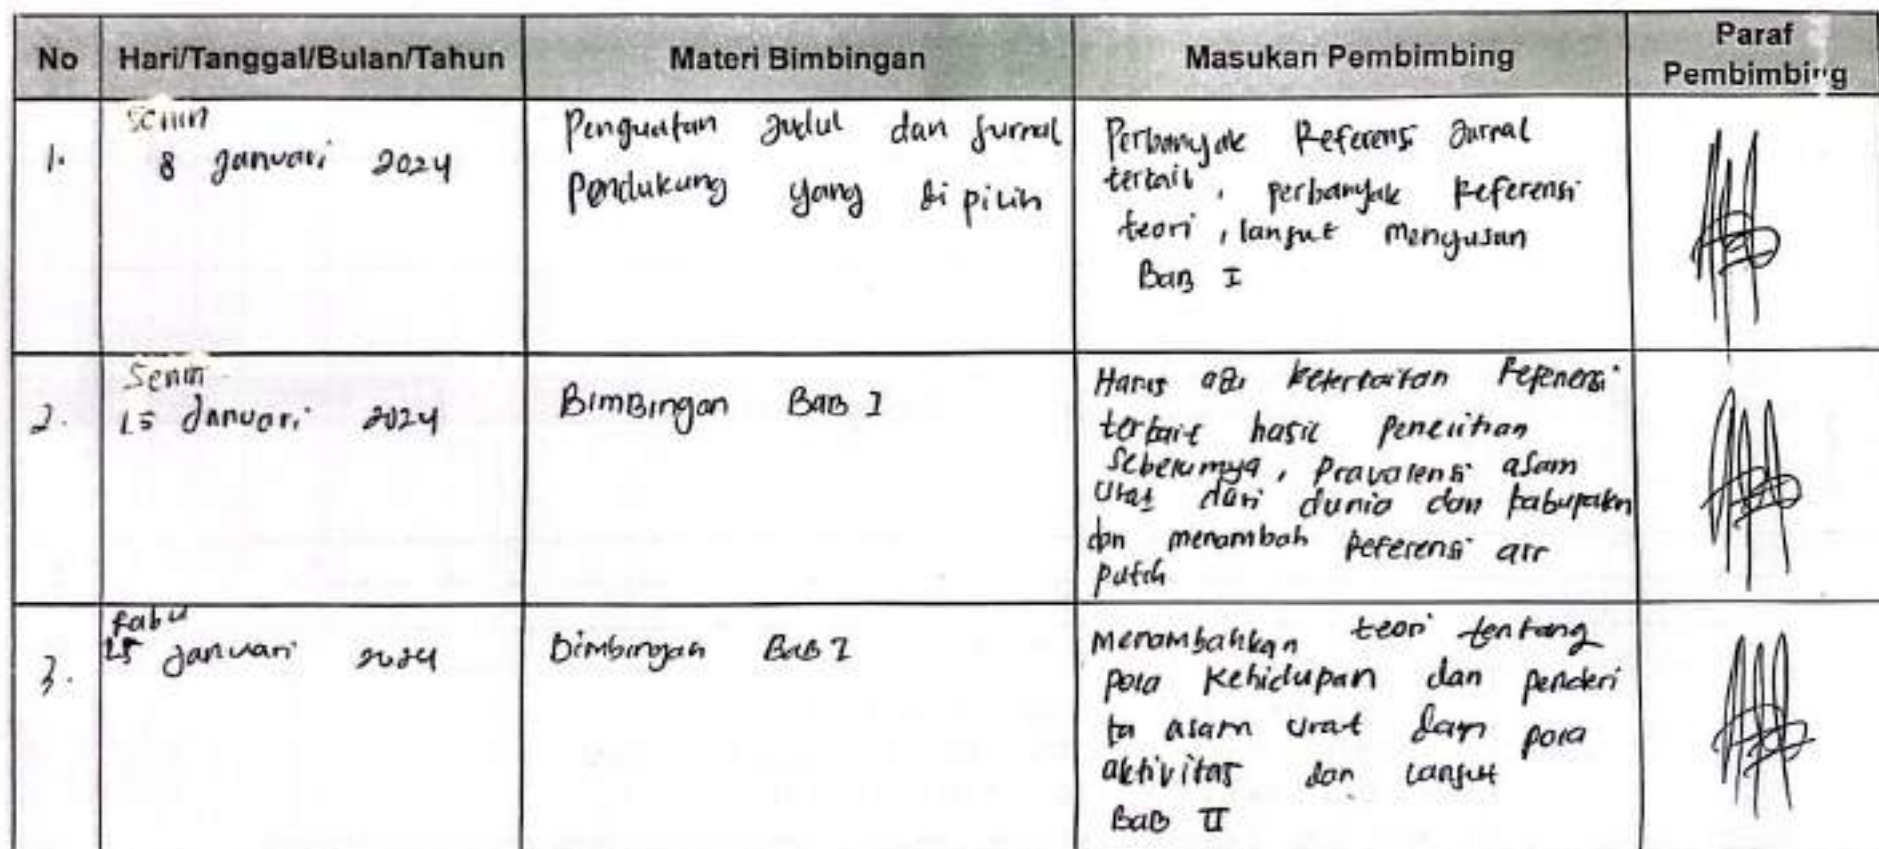 No Hari/Tanggal/Bulan/Tahun Materi Bimbingan Masukan Pembimbing Paraf Pembimbing
1.
Senin
8 Januari 2024
Penguatan Judul dan Jurnal
Pendukung yang di pilih
Perbanyak Referensi Jurnal
terkait, perbanyak Referensi
teori, lanjut menyusun
Bab I
2.
Senin
15 Januari 2024
Bimbingan Bab I
Harus ada keterkaitan Referensi
terkait hasil penelitian
Sebelumya, Pravalensi asam
urat dari dunia dan kabupaten
dan menambah Referensi air
putih
3.
Rabu
25 Januari 2024
Bimbingan Bab I
Menambahkan teori tentang
pola Kehidupan dan penderi
ta asam urat dan pola
aktivitas dan lanjut
Bab II